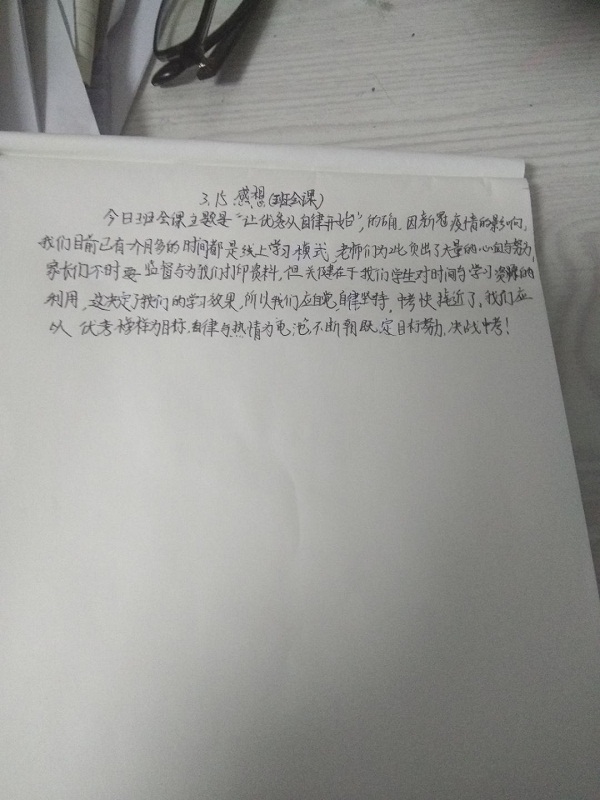 3.15 感想(班会课)
今日班会课主题是“让优秀从自律开始”,的确,因新冠疫情的影响,
我们目前已有1个月多的时间都是线上学习模式,老师们为此负出了大量的心血与努力,
家长们不时要监督与为我们打印资料,但关键在于我们学生对时间与学习资源的
利用,这决定了我们的学习效果,所以我们应自觉,自律坚持,中考快接近了,我们应
以优秀榜样为目标,自律与热情为电池,不断朝既定目标努力,决战中考!